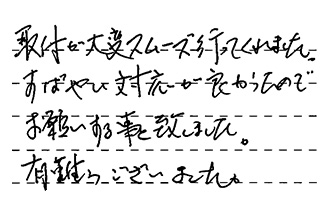 取付が大変スムーズ行ってくれました。
すばやい対応が良かったので
お願いする事と致しました。
有難うございました。